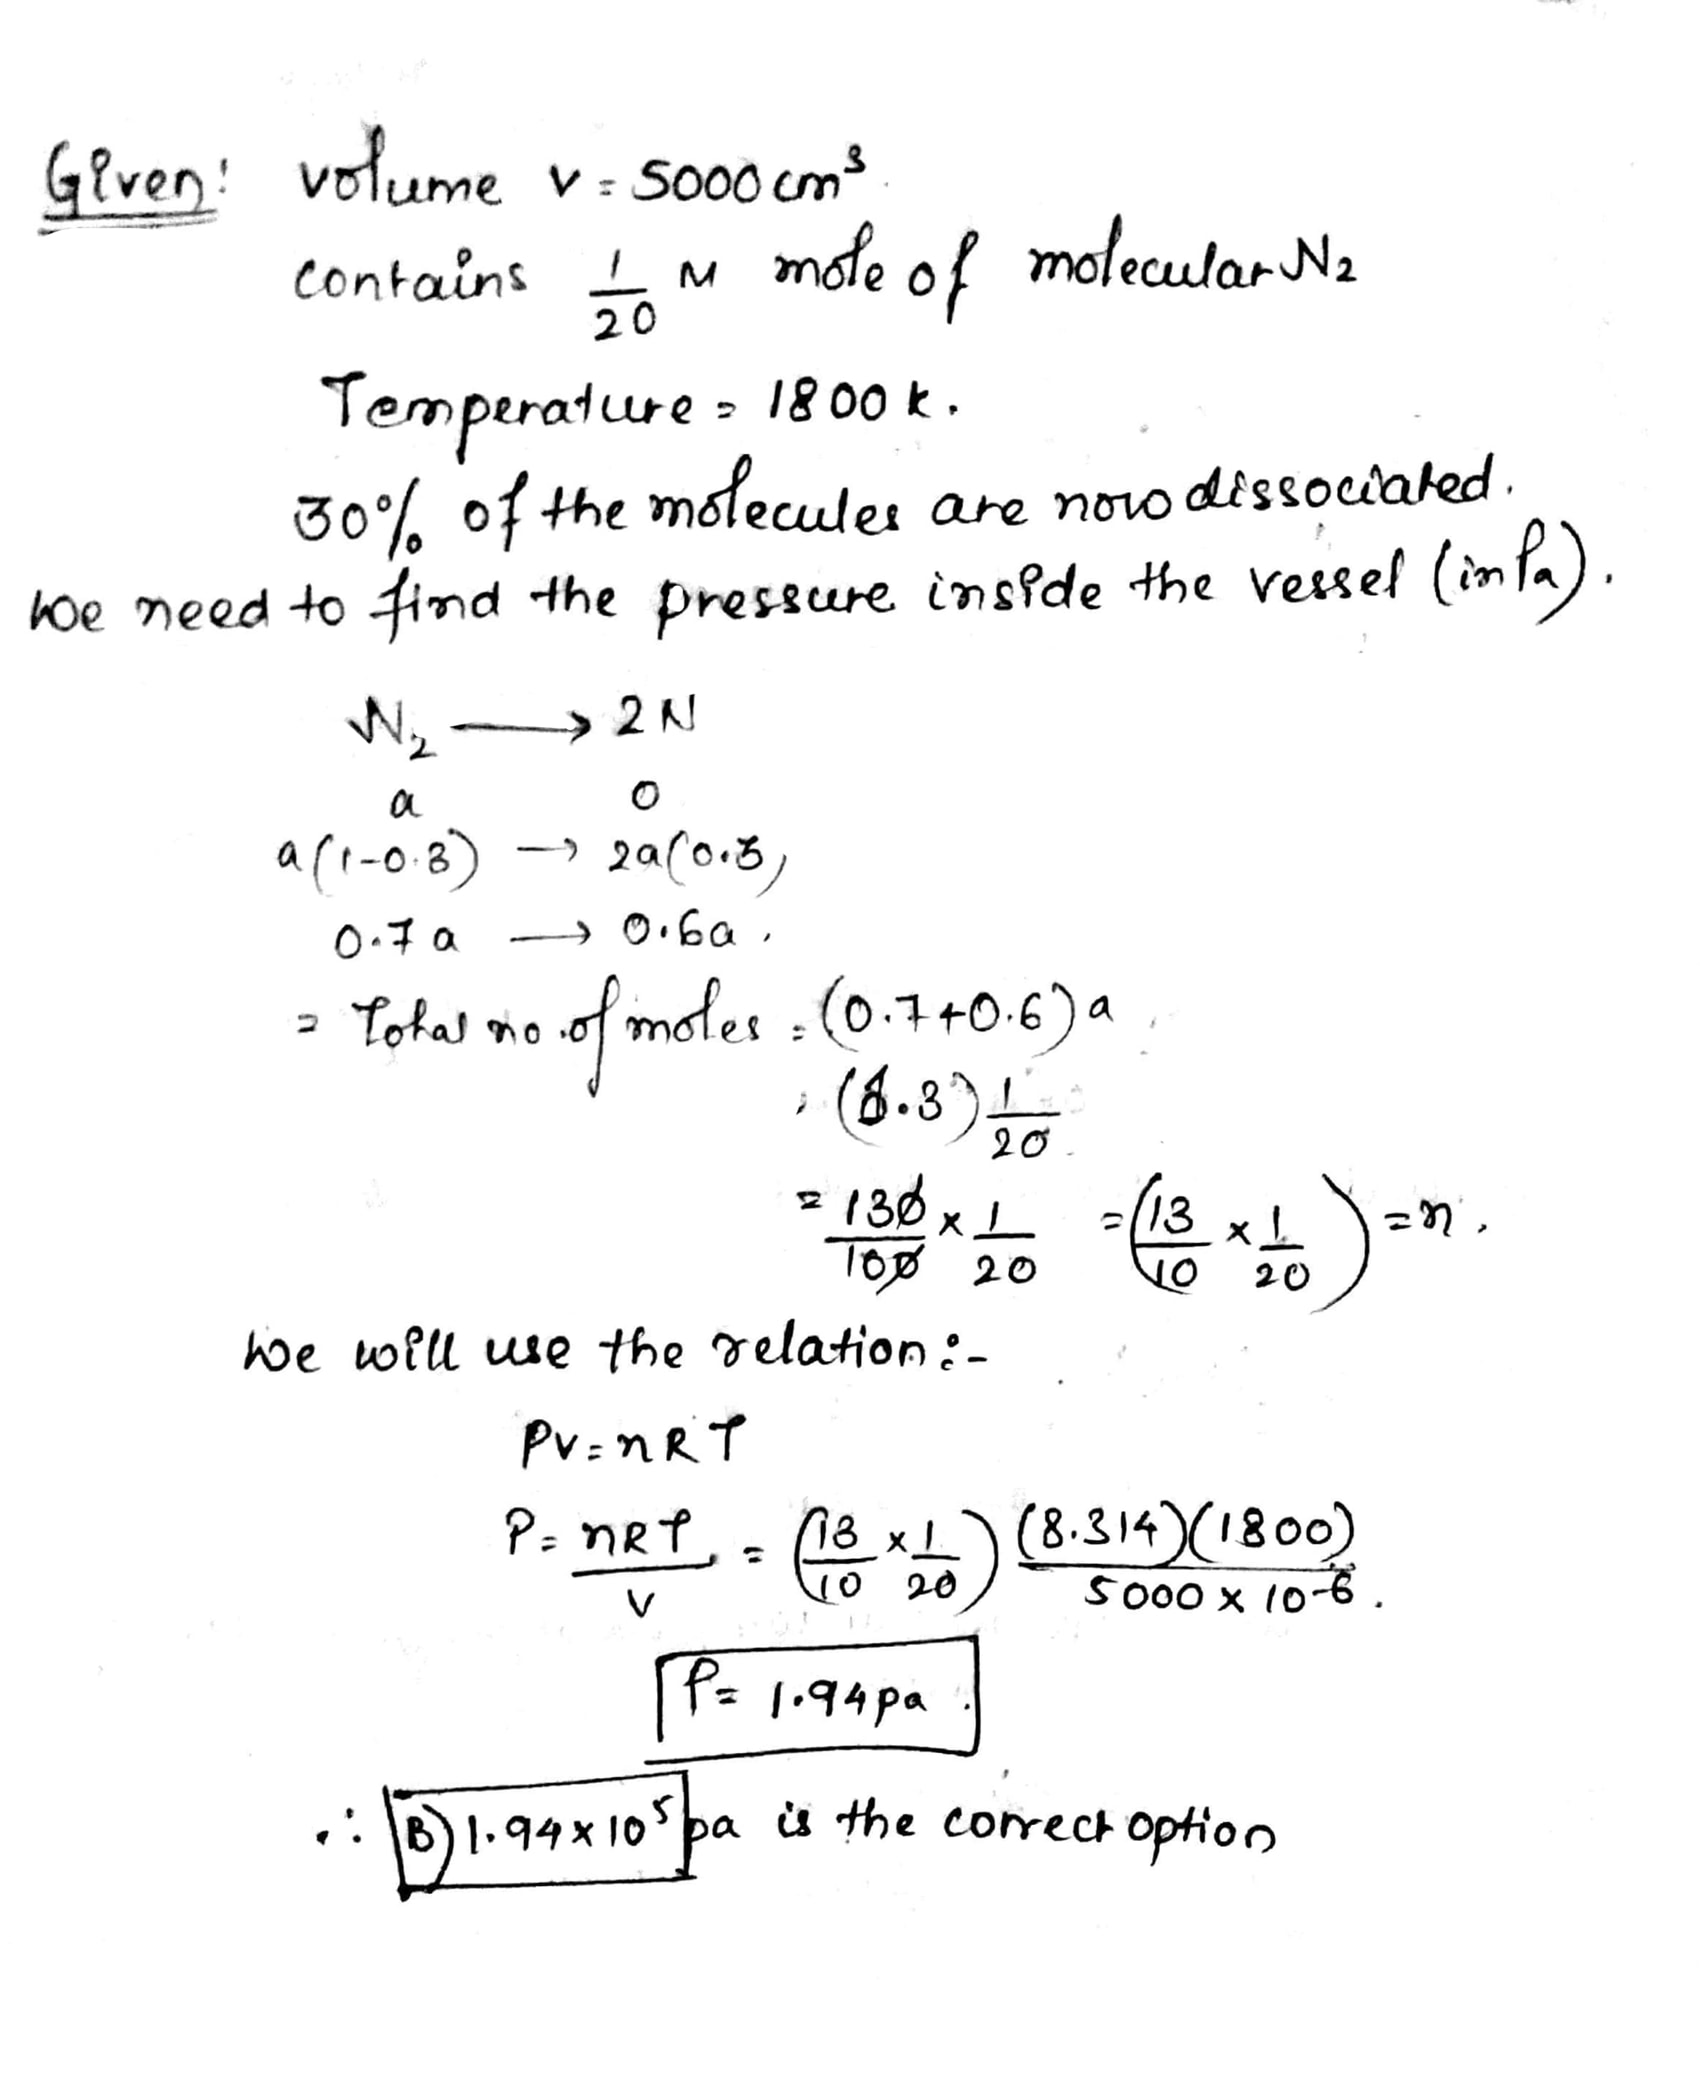 Given: volume v = 5000 cm³
contains 1/20 M mole of molecular N₂
Temperature = 1800 k.
30% of the molecules are now dissociated.
We need to find the pressure inside the vessel (in Pa).
N₂ → 2N
a 0
a(1-0.3) → 2a(0.3)
0.7a → 0.6a.
= Total no. of moles = (0.7+0.6)a
= (1.3) 1/20
= 130/100 × 1/20 = (13/10 × 1/20) = n.
We will use the relation:-
PV = nRT
P = nRT/V = (13/10 × 1/20) (8.314)(1800)/5000 × 10-6.
P = 1.94 pa.
∴ B) 1.94 × 10⁵ pa is the correct option